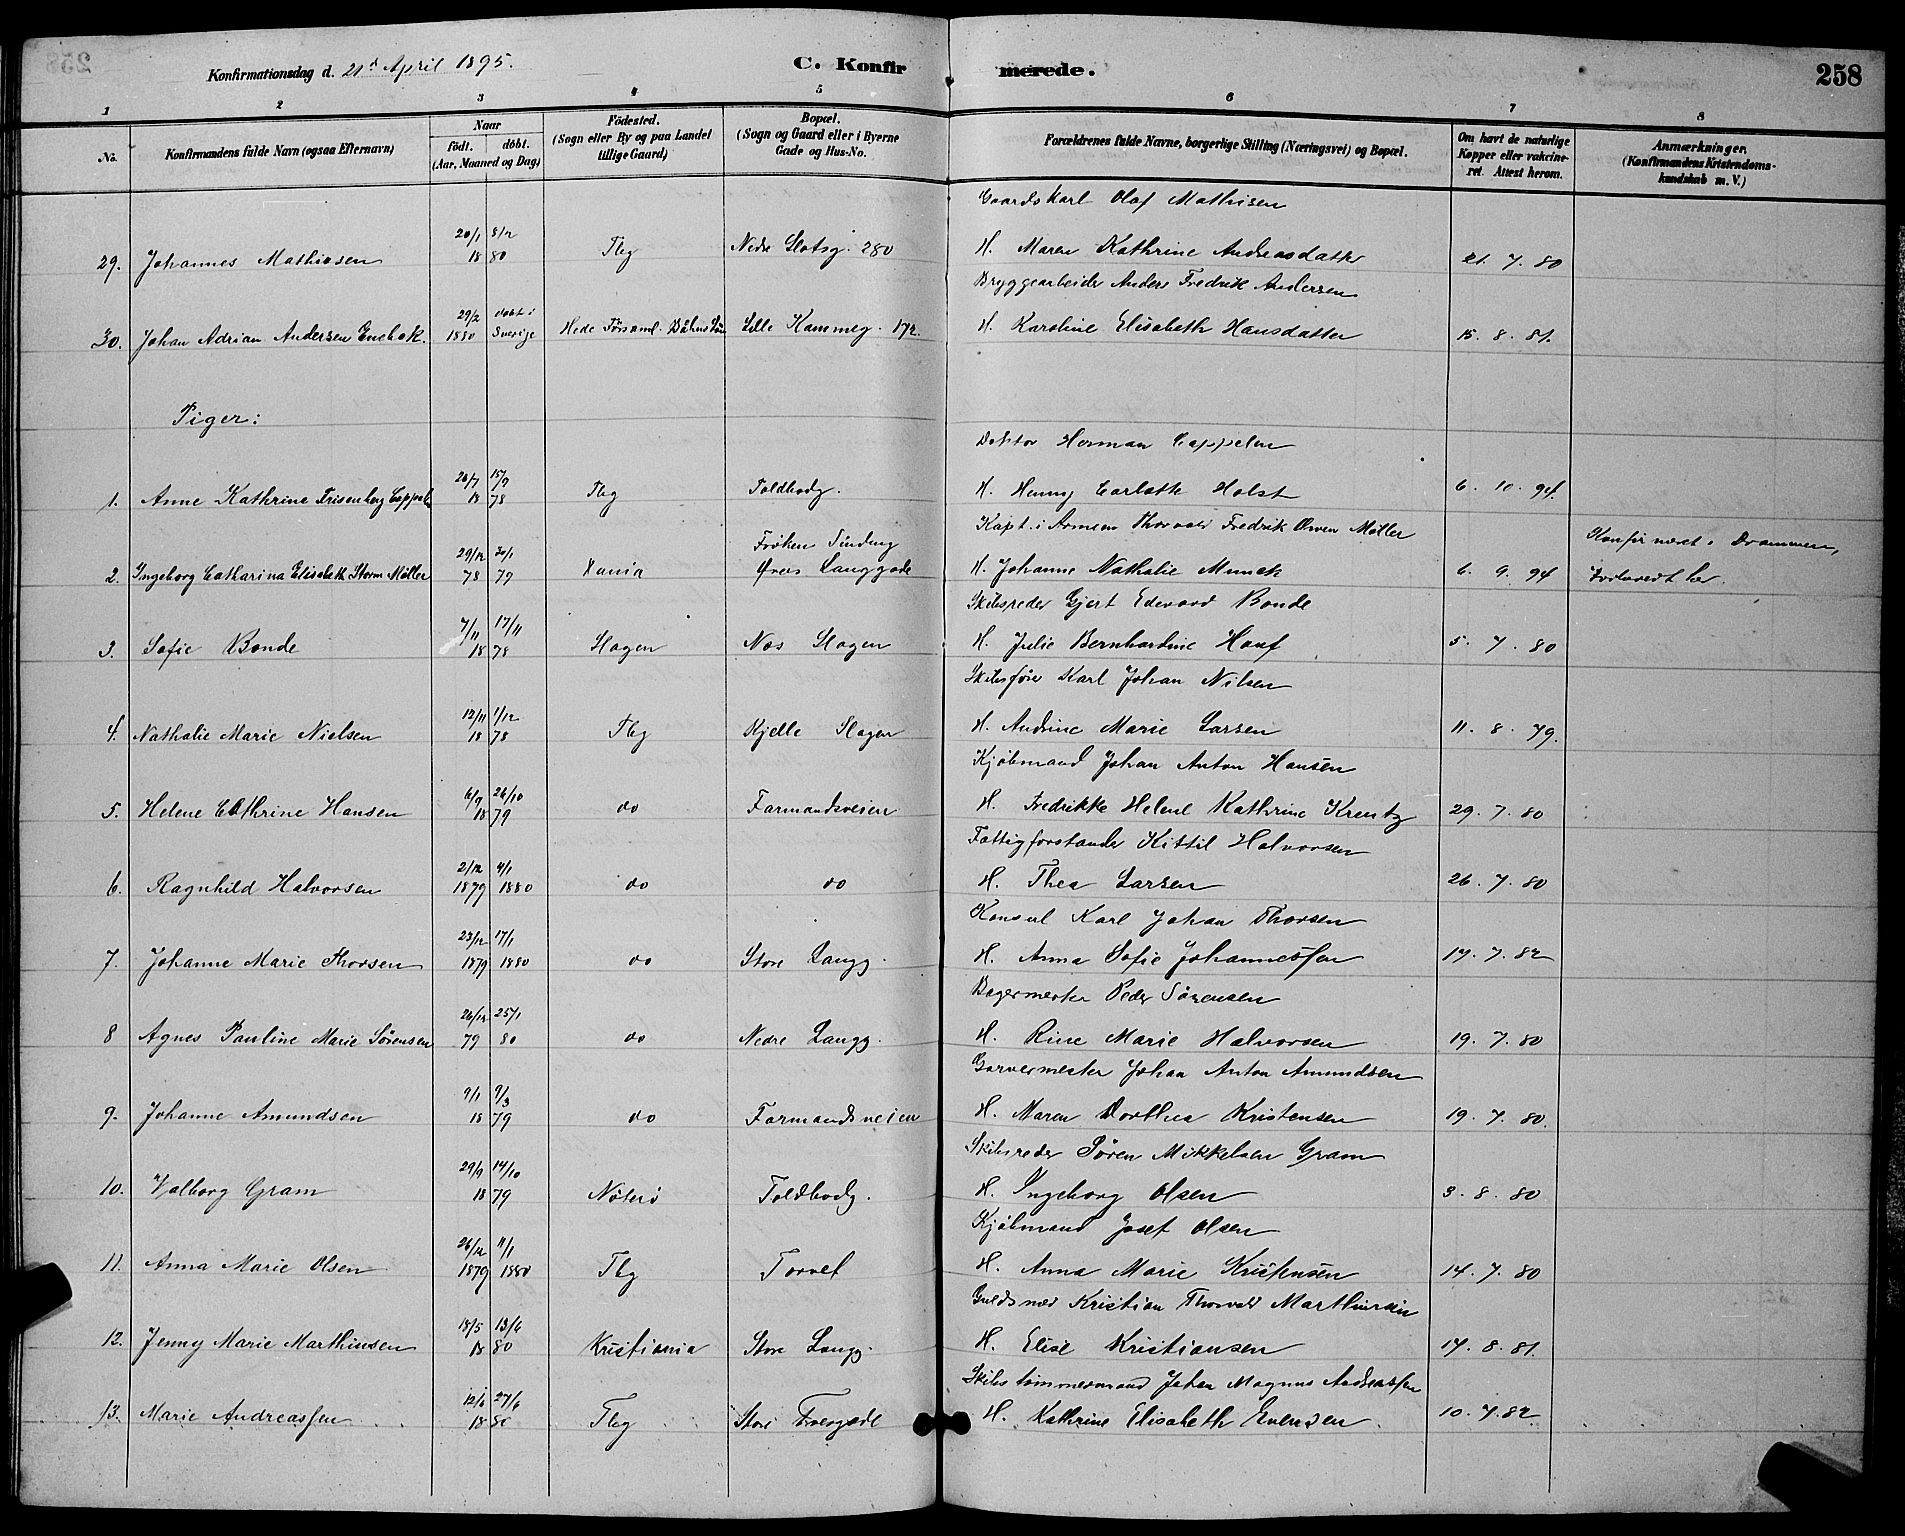 258
Konfirmationsdag d. 21d April 1895.
C. Konfirmerede.
1 2 3 4 5 6 7 8
No.
Konfirmandens fulde Navn (ogsaa Efternavn)
Naar
født. døbt.
(Aar, Maaned og Dag)
Fødested.
(Sogn eller By og paa Landet
tillige Gaard)
Bopæl.
(Sogn og Gaard eller i Byerne
Gade og Hus-No.
Forældrenes fulde Navne, borgerlige Stilling (Næringsvei) og Bopæl.
Om havt de naturlige
Kopper eller vakcine-
ret. Attest herom.
Anmærkninger.
(Konfirmandens Kristendoms-
kundskab m. V.)
Gaardskarl Olaf Mathisen
20/1 8/2
29. Johannes Mathiasen 18 80 Tbg Nedre Slotsg. 280 H. Maren Kathrine Andreasdatter 21. 7. 80
Bryggearbeider Anders Fredrik Andersen
29/2 døbt i
30. Johan Adrian Andersen 1880 Sverige Hede Førsaml. Lille Kammeg. 172. H. Karoline Elisabeth Hansdatter 15. 8. 81.
Piger:
Doktor Herman Cappelen
26/7 15/9
1. Anne Kathrine Frisenberg 18 78 Tbg Toldbodg. H. Henny Carlotte Holst 6. 10. 94.
Kapt. i Armeen Thorvald Fredrik Owen Møller
29/12 30/1 Frøken Tindeng Konfirmeret i Drammen,
2. Ingeborg Catharina Elisabeth Storm Møller 78 79 Xania Øvre Langgade H. Johanne Nathalie Munck 6. 9. 94 forberedt her.
Skibsreder Gjert Edevard Bonde
7/11 17/11
3. Sofie Bonde 18 78 Slagen Næs Slagen H. Julie Bernhardine Hauf 5. 7. 80
Skibsfører Karl Johan Nilsen
12/11 1/12
4. Nathalie Marie Nielsen 18 78 Tbg Kjelle Slagen H. Andrine Marie Larsen 11. 8. 79.
Kjøbmand Johan Anton Hansen
6/9 26/10
5. Helene Cathrine Hansen 18 79 do Farmandsveien H. Fredrikke Helene Kathrine Krentz 29. 7. 80
Fattigforstander Kittil Halvorsen
2/12 4/1
6. Ragnhild Halvorsen 1879 1880 do do H. Thea Larsen 26. 7. 80
Konsul Karl Johan Thorsen
23/12 17/1
7. Johanne Marie Thorsen 1879 1880 do Store Langg. H. Anna Sofie Johannessen 19. 7. 82
Bagermester Peder Sørensen
26/12 25/1
8 Agnes Pauline Marie Sørensen 79 80 do Nedre Langg. H. Rine Marie Halvorsen 19. 7. 80
Garvermester Johan Anton Amundsen
9/1 9/3
9. Johanne Amundsen 18 79 do Farmandsveien H. Maren Dorthea Kristensen 19. 7. 80.
Skibsreder Søren Mikkelsen Gram
29/9 14/10
10. Valborg Gram 18 79 Nøterø Toldbodg. H. Ingeborg Olsen 3. 8. 80
Kjøbmand Josef Olsen
26/12 11/1
11. Anna Marie Olsen 1879 1880 Tbg Torvet H. Anna Marie Kristensen 14. 7. 80
Guldsmed Kristian Thorvald Marthinsen
18/5 13/6
12. Jenny Marie Marthinsen 18 80 Kristiania Store Langg. H. Elise Kristiansen 17. 8. 81.
Skibstømmermand Johan Magnus Andreassen
12/6 27/6
13. Marie Andreassen 18 80 Tbg Store Tvergade H. Kathrine Elisabeth Evensen 10. 7. 82